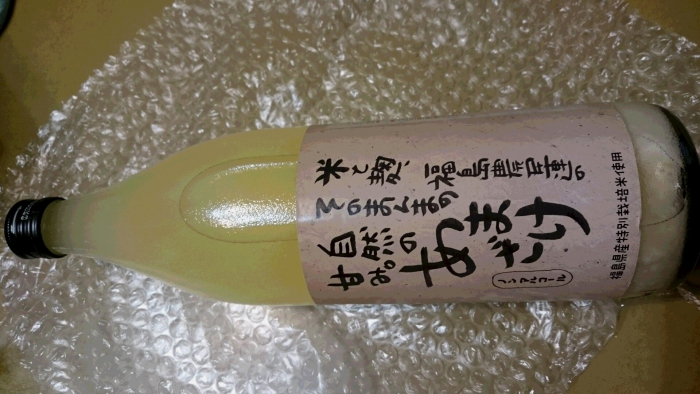 米と麹、
そのまんまの
自然の
甘み。
福島農民連の
あま
ざけ
ノンアルコール
福島県産特別栽培米使用